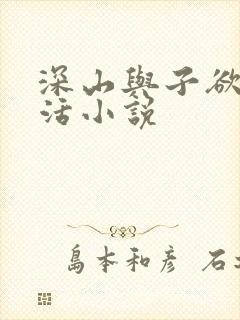 深山與子欲
活小說
島本和彥 石